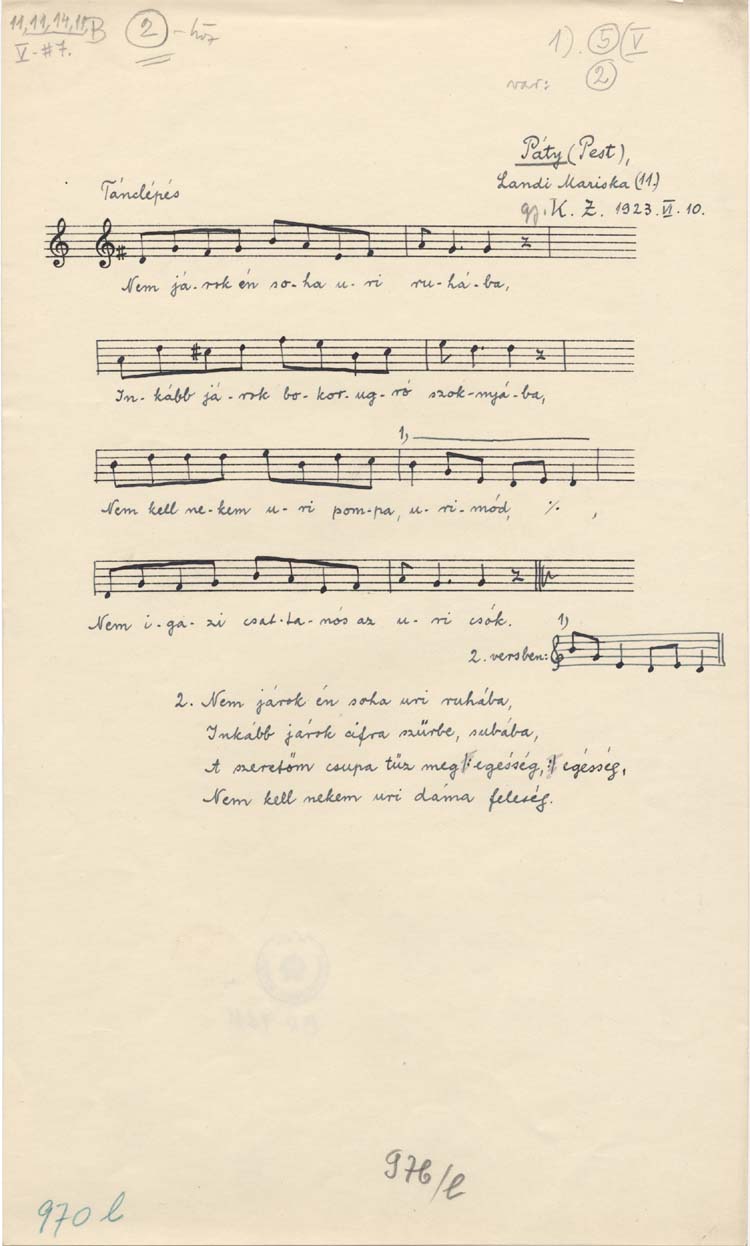 11,11,14,11, B
2 -höz
V-#7.
1). 5 (V
var: 2
Páty (Pest),
Tánclépés
Landi Mariska (11.)
gy. K. Z. 1923. VI. 10.
Nem já-rok én so-ha u-ri ru-há-ba,
In-kább já-rok bo-kor-ug-ró szok-nyá-ba,
1,
Nem kell ne-kem u-ri pom-pa, u-ri-mód, ·/. ,
Nem i-ga-zi csat-ta-nós az u-ri csók.
1,
2. versben:
2. Nem járok én soha uri ruhába,
Inkább járok cifra szűrbe, subába,
A szeretőm csupa tűz meg |: egésség, :| egésség,
Nem kell nekem uri dáma feleség.
976/l
970 l